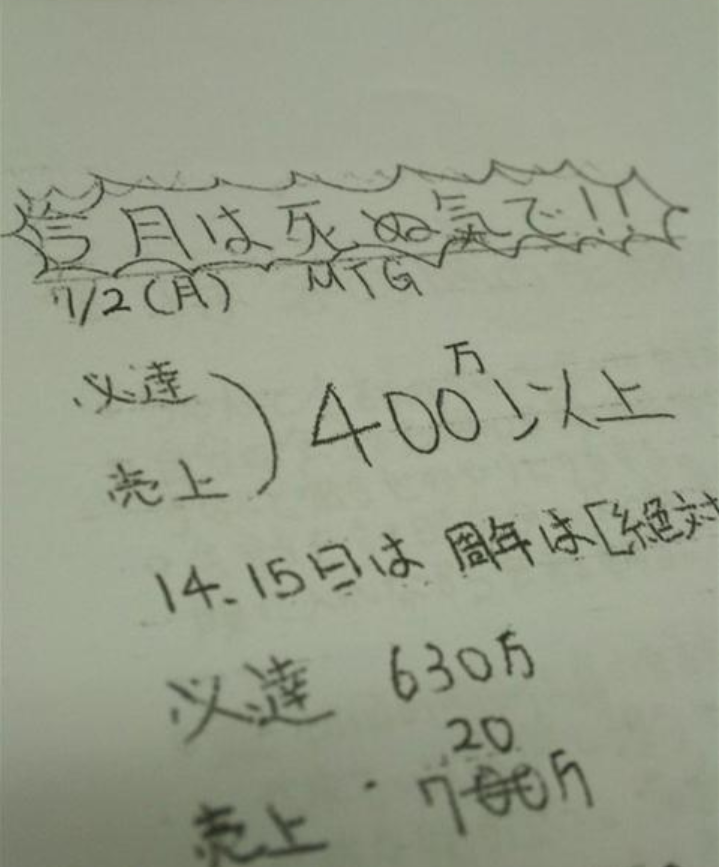 今月は死ぬ気で!!
7/2(月) MTG
必達
売上
400万以上
14.15日は 周年は[絶対
必達 630万
20
売上・700万